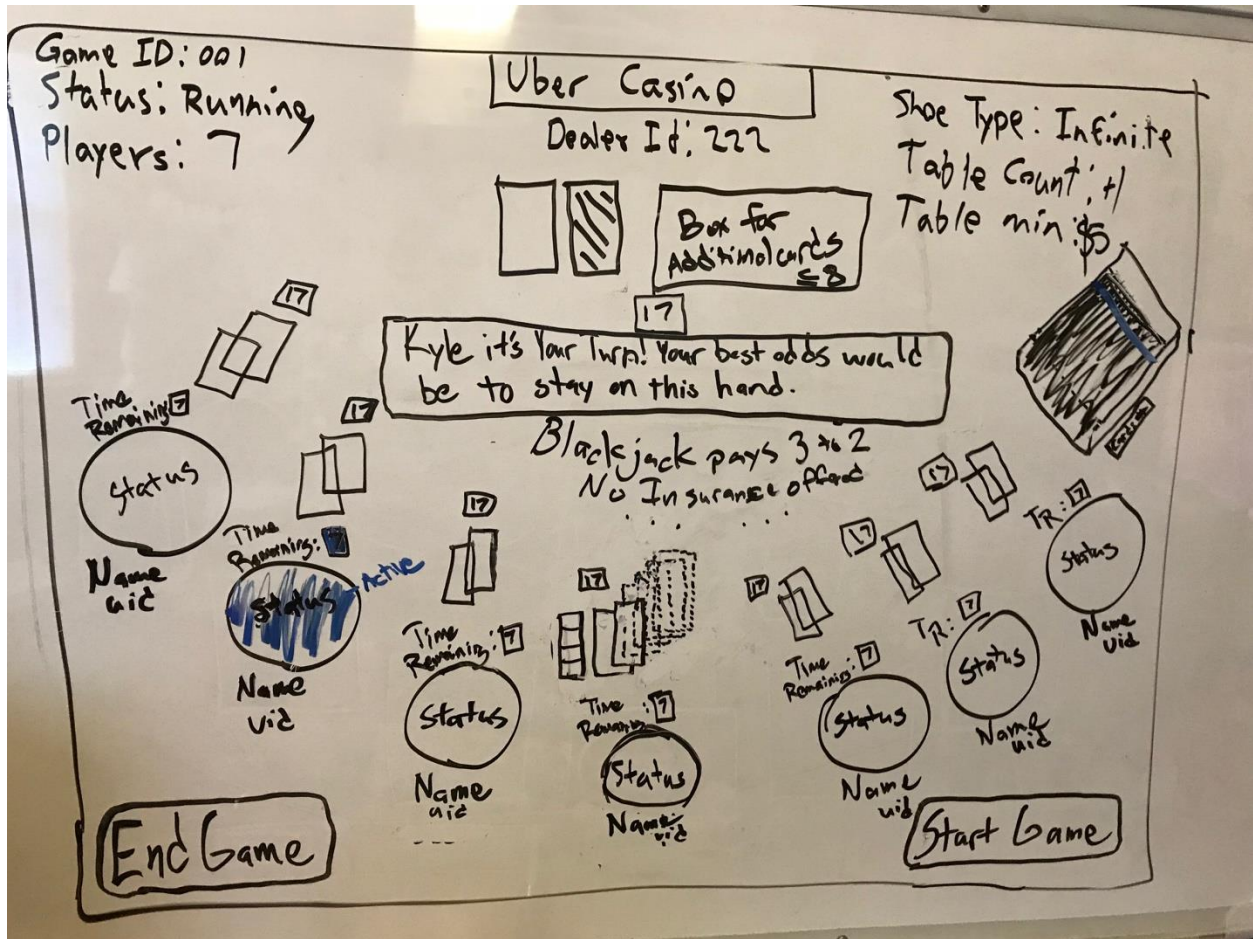 Game ID: 001
Status: Running
Players: 7
Uber Casino
Dealer Id: 222
Shoe Type: Infinite
Table Count: +1
Table min: $5
Box for
Additional cards
≤ 8
17
Kyle it's Your Turn! Your best odds would
be to stay on this hand.
Blackjack pays 3 to 2
No Insurance offered
17
Time
Remaining: 7
Status
Name
uid
17
Time
Remaining: 7
Status
Active
Name
uid
17
Time
Remaining: 7
Status
Name
uid
17
Time
Remaining: 7
Status
Name
uid
17
Time
Remaining: 7
Status
Name
uid
17
TR: 7
Status
Name
uid
17
TR: 7
Status
Name
uid
End Game
Start Game